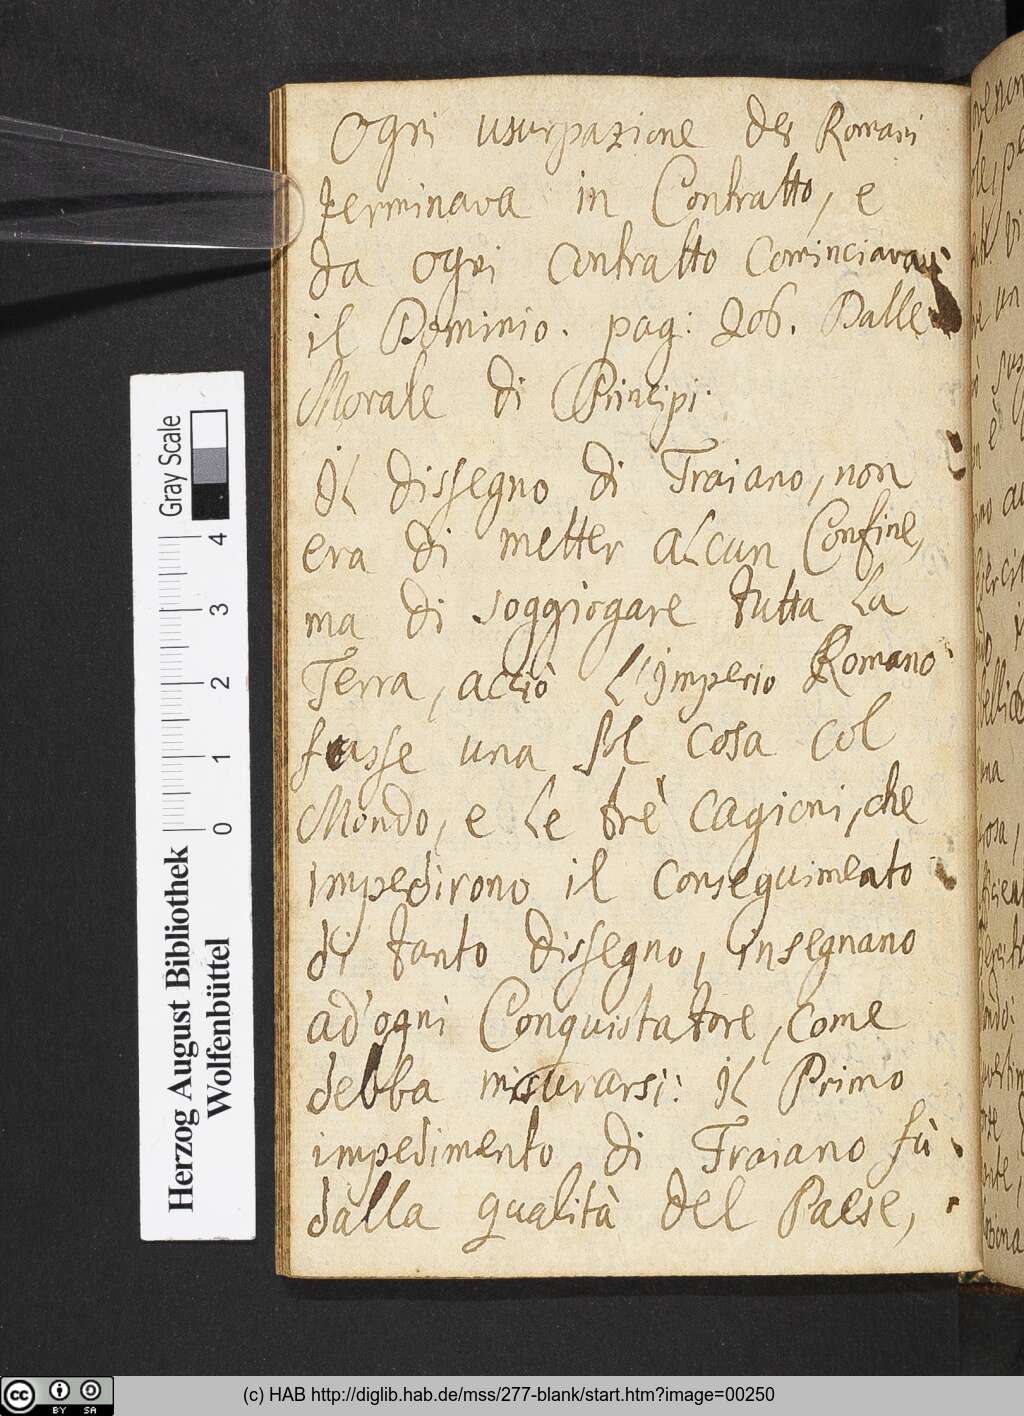 Ogni usurpazione de Romani
terminava in Contratto, e
da ogni contratto cominciava
il Dominio. pag: 206. Dalle
Morale di Principi.
Il dissegno di Traiano, non
era di metter alcun Confine,
ma di soggiogare tutta la
Terra, acciò l'Imperio Romano
fusse una sol cosa col
Mondo, e le trè cagioni, che
impedirono il conseguimento
di tanto dissegno, insegnano
ad'ogni Conquistatore, come
debba misurarsi: Il Primo
impedimento di Traiano fù
dalla qualità del Paese,
Herzog August Bibliothek
Wolfenbüttel
0 1 2 3 4
Gray Scale
cc BY SA
(c) HAB http://diglib.hab.de/mss/277-blank/start.htm?image=00250